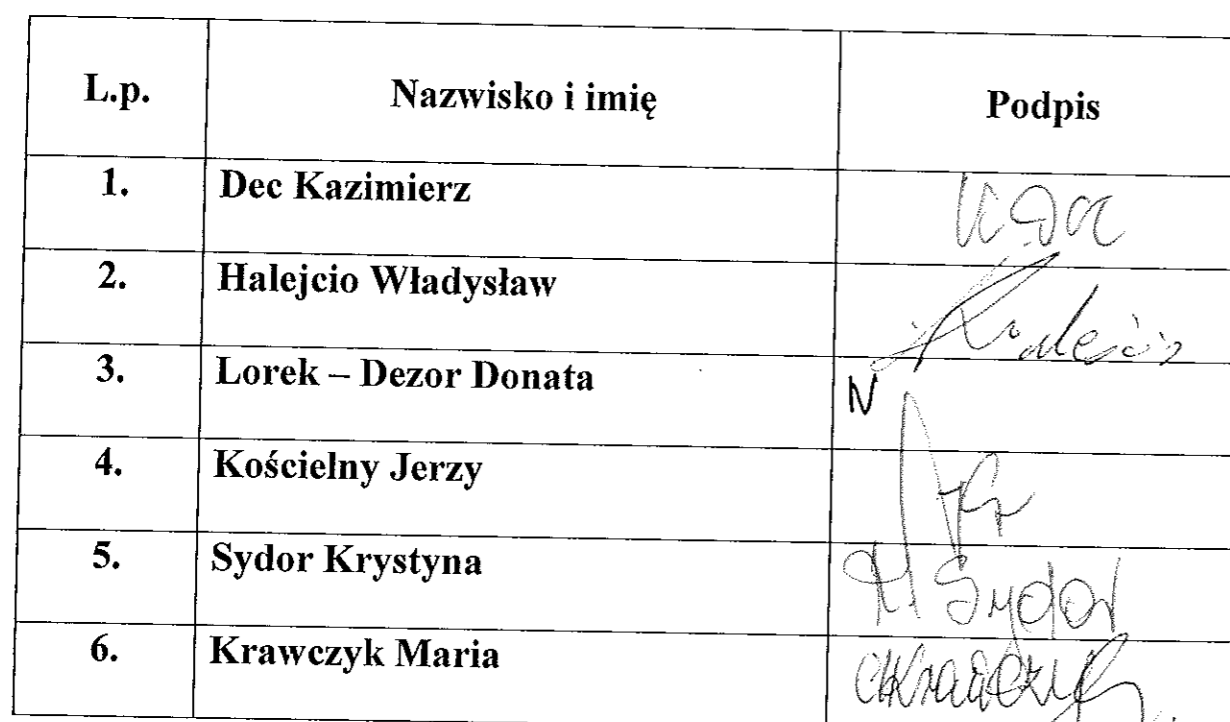 L.p. Nazwisko i imię Podpis
1. Dec Kazimierz
2. Halejcio Władysław
3. Lorek – Dezor Donata N
4. Kościelny Jerzy
5. Sydor Krystyna Sydor
6. Krawczyk Maria